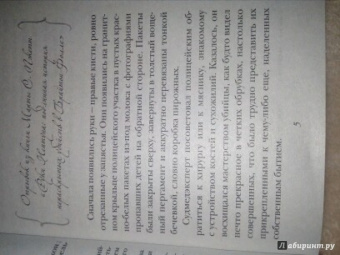 Сначала появились руки – правые кисти, ровно
отрезанные у запястья. Они появились на гранит-
ном крыльце полицейского участка в пустых крас-
но-белых пакетах из-под молока с фотографиями
пропавших детей на обратной стороне. Пакеты
были закрыты сверху, завернуты в толстый воще-
ный пергамент и аккуратно перевязаны тонкой
бечевкой, словно коробка пирожных.
Судмедэксперт посоветовал полицейским об-
ратиться к хирургу или к мяснику, знакомому
с устройством костей и сухожилий. Казалось, он
восхищался мастерством убийцы, как будто видел
нечто прекрасное в четких обрубках, настолько
совершенных, что было трудно представить их
прикрепленными к чему-либо еще, наделенных
собственным бытием.
5
абиринт.ру